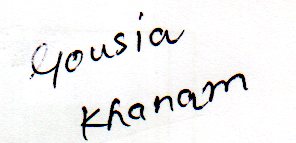 Gousia
Khanam